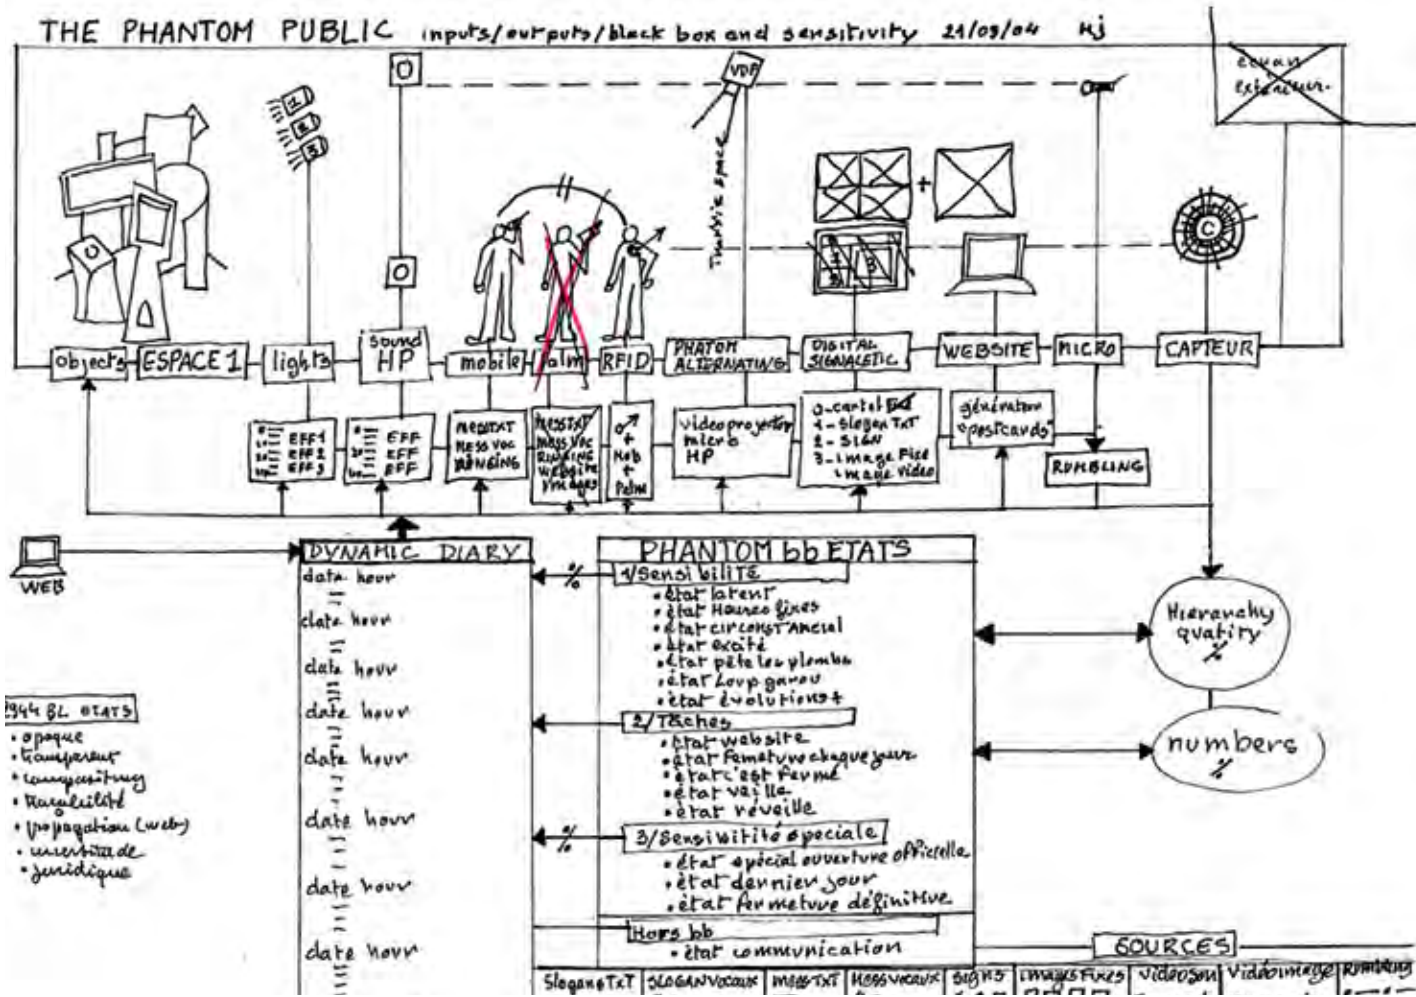 THE PHANTOM PUBLIC inputs/outputs/black box and sensitivity 21/09/04
écran
extérieur
1
2
3
VDP
C
objects ESPACE 1 lights sound HP mobile palm RFID PHATOM ALTERNATING DIGITAL SIGNALETIC WEBSITE MICRO CAPTEUR
EFF1
EFF2
EFF3
EFF
EFF
EFF
MESSTXT
MESS VOC
RINGING
MESSTXT
MESS VOC
RINGING
website
images
+
Mob
+
Palm
videoprojector
micro
HP
0-cartel
1-Slogan TXT
2-SIGN
3-image Fixe
image video
génération
"postcards"
RUMBLING
WEB
DYNAMIC DIARY
date hour
date hour
date hour
date hour
date hour
date hour
date hour
date hour
PHANTOM bb ETATS
%
1/Sensibilité
• état latent
• état Heures fixes
• état circonstanciel
• état excité
• état pète les plombs
• état Loup garou
• état évolutions +
2/Tâches
• état website
• état fermeture chaque jour
• état c'est fermé
• état veille
• état réveille
%
3/Sensiwitité spéciale
• état spécial ouverture officielle
• état dernier jour
• état fermeture définitive
Hors bb
• état communication
Hierarchy
quatity
%
numbers
%
BL ETATS
• opaque
• transparent
• compositing
• traçabilité
• propagation (web)
• juridique
SOURCES
Slogans TXT SLOGAN VOCAUX MESS TXT MESS VOCAUX Signs images Fixes videoson Videoimage RUMBLING